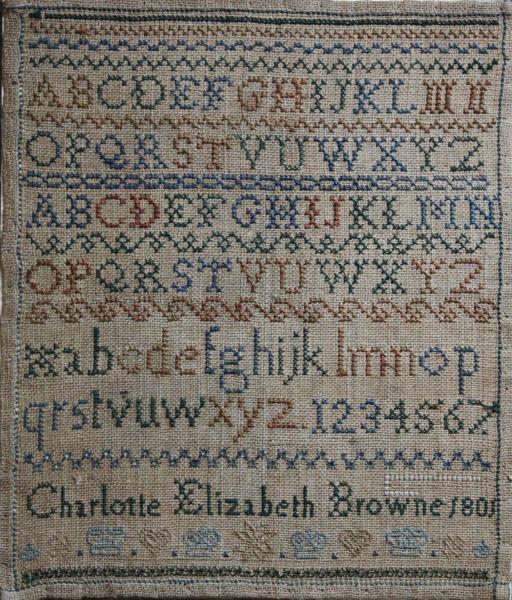 ABCDEFGHIJKLMN
OPQRSTVUWXYZ
ABCDEFGHIJKLMN
OPQRSTVUWXYZ
abcdefghijklmnop
qrstvuwxyz.1234567
Charlotte Elizabeth Browne 1801